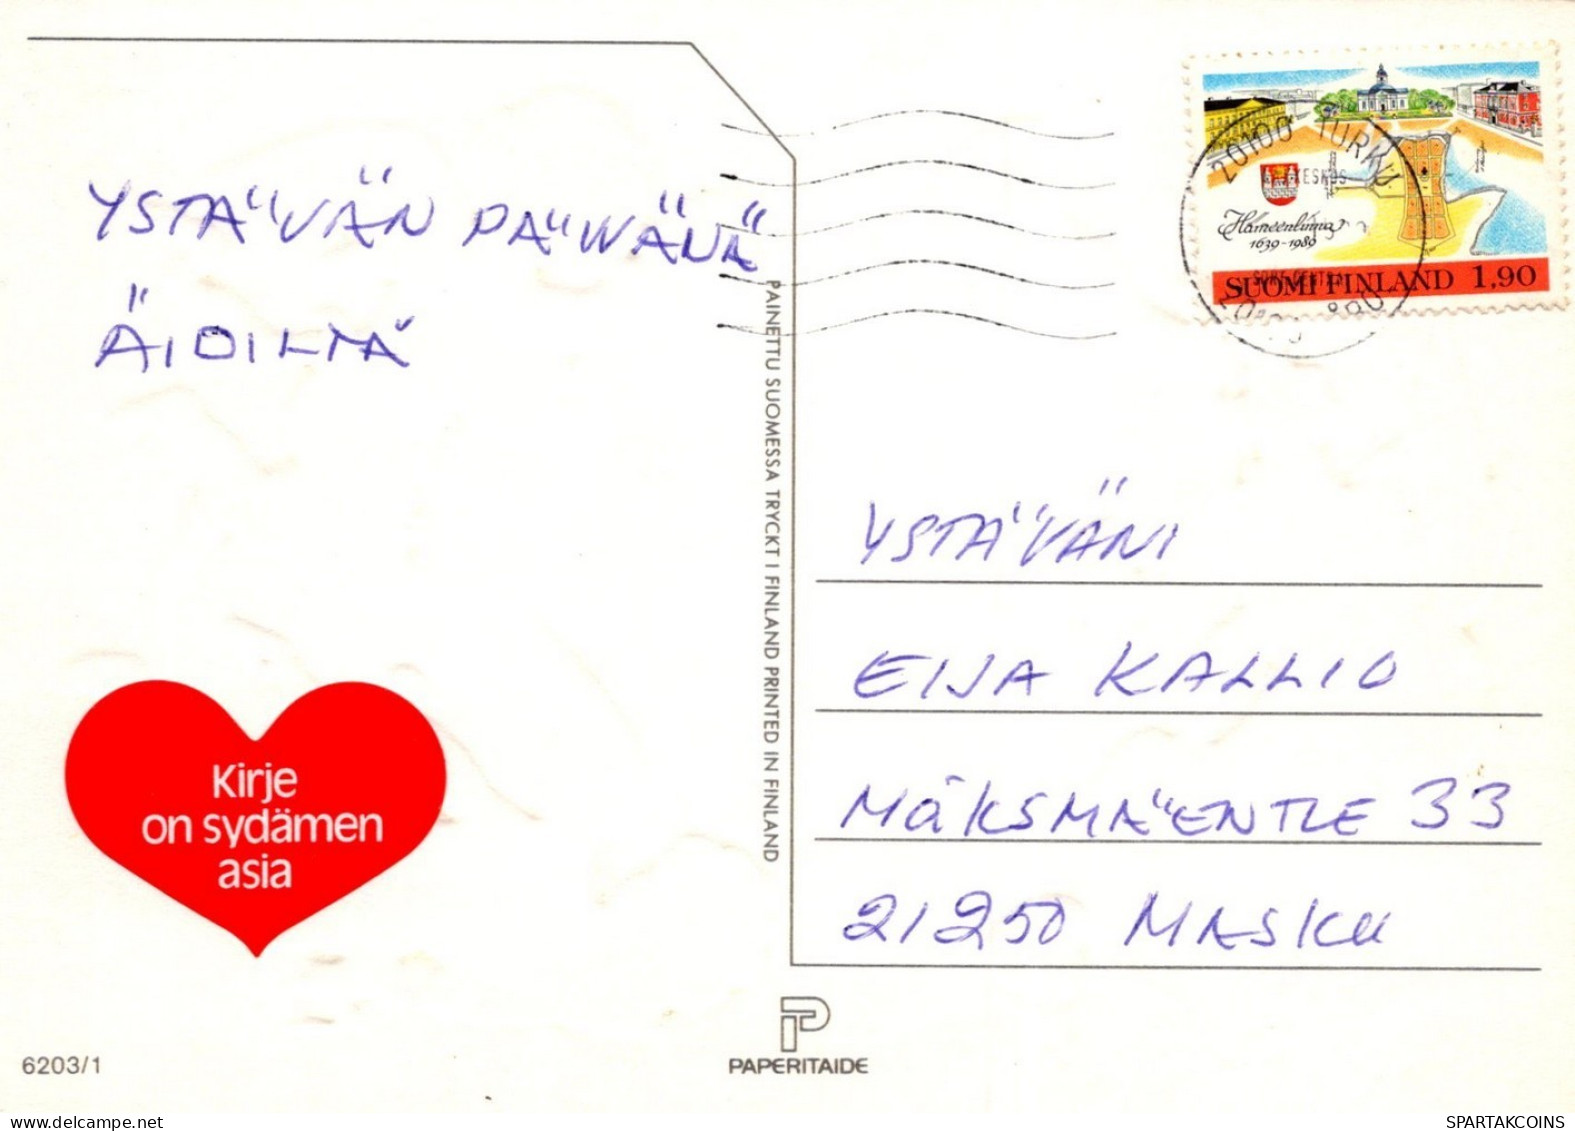 YSTÄVÄN PÄIVÄNÄ
ÄIDILTÄ
Kirje
on sydämen
asia
6203/1
PAINETTU SUOMESSA TRYCKT I FINLAND PRINTED IN FINLAND
PAPERITAIDE
20100 TURKU
KESKUS
Hämeenlinna
1639-1989
SUOMI FINLAND 1,90
YSTÄVÄNI
EIJA KALLIO
33
21250 MASKU
SPARTAKCOINS
delcampe.net